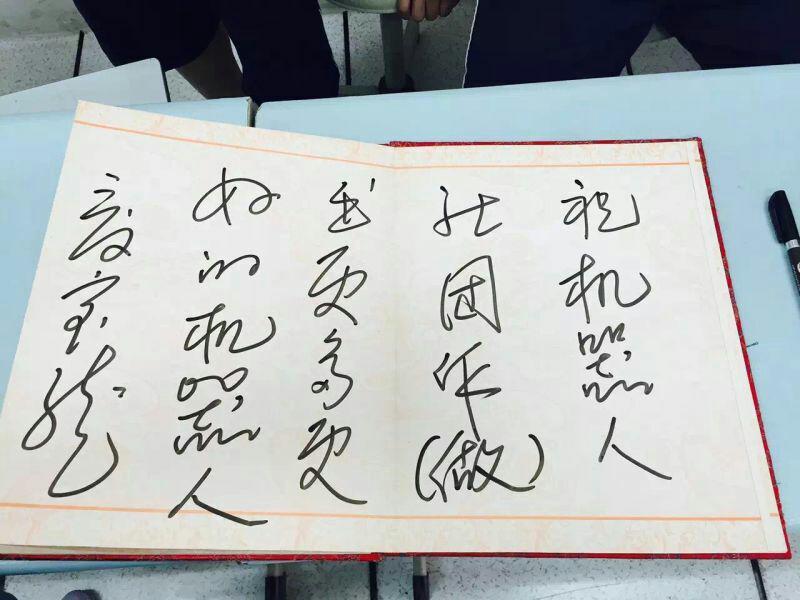 祝机器人
社团作(做)
出更多更
好的机器人
宝龙